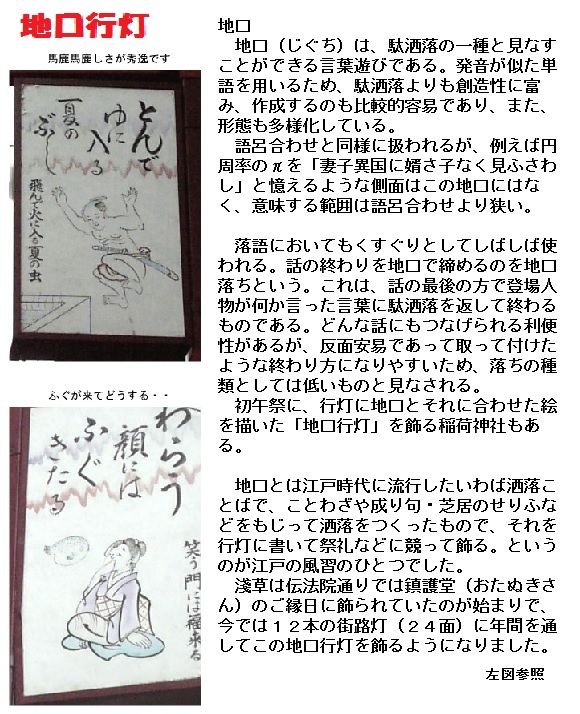 地口行灯
馬鹿馬鹿しさが秀逸です
とんで
ゆに
入る
夏の
ぶし
飛んで火に入る夏の虫
ふぐが来てどうする・・
わらう
顔には
ふぐ
きたる
笑う門には福来る
地口
地口（じぐち）は、駄洒落の一種と見なす
ことができる言葉遊びである。発音が似た単
語を用いるため、駄洒落よりも創造性に富
み、作成するのも比較的容易であり、また、
形態も多様化している。
語呂合わせと同様に扱われるが、例えば円
周率のπを「妻子異国に婿さ子なく見ふさわ
し」と憶えるような側面はこの地口にはな
く、意味する範囲は語呂合わせより狭い。
落語においてもくすぐりとしてしばしば使
われる。話の終わりを地口で締めるのを地口
落ちという。これは、話の最後の方で登場人
物が何か言った言葉に駄洒落を返して終わる
ものである。どんな話にもつなげられる利便
性があるが、反面安易であって取って付けた
ような終わり方になりやすいため、落ちの種
類としては低いものと見なされる。
初午祭に、行灯に地口とそれに合わせた絵
を描いた「地口行灯」を飾る稲荷神社もあ
る。
地口とは江戸時代に流行したいわば洒落こ
とばで、ことわざや成り句・芝居のせりふな
どをもじって洒落をつくったもので、それを
行灯に書いて祭礼などに競って飾る。という
のが江戸の風習のひとつでした。
淺草は伝法院通りでは鎮護堂（おたぬきさ
ん）のご縁日に飾られていたのが始まりで、
今では１２本の街路灯（２４面）に年間を通
してこの地口行灯を飾るようになりました。
左図参照